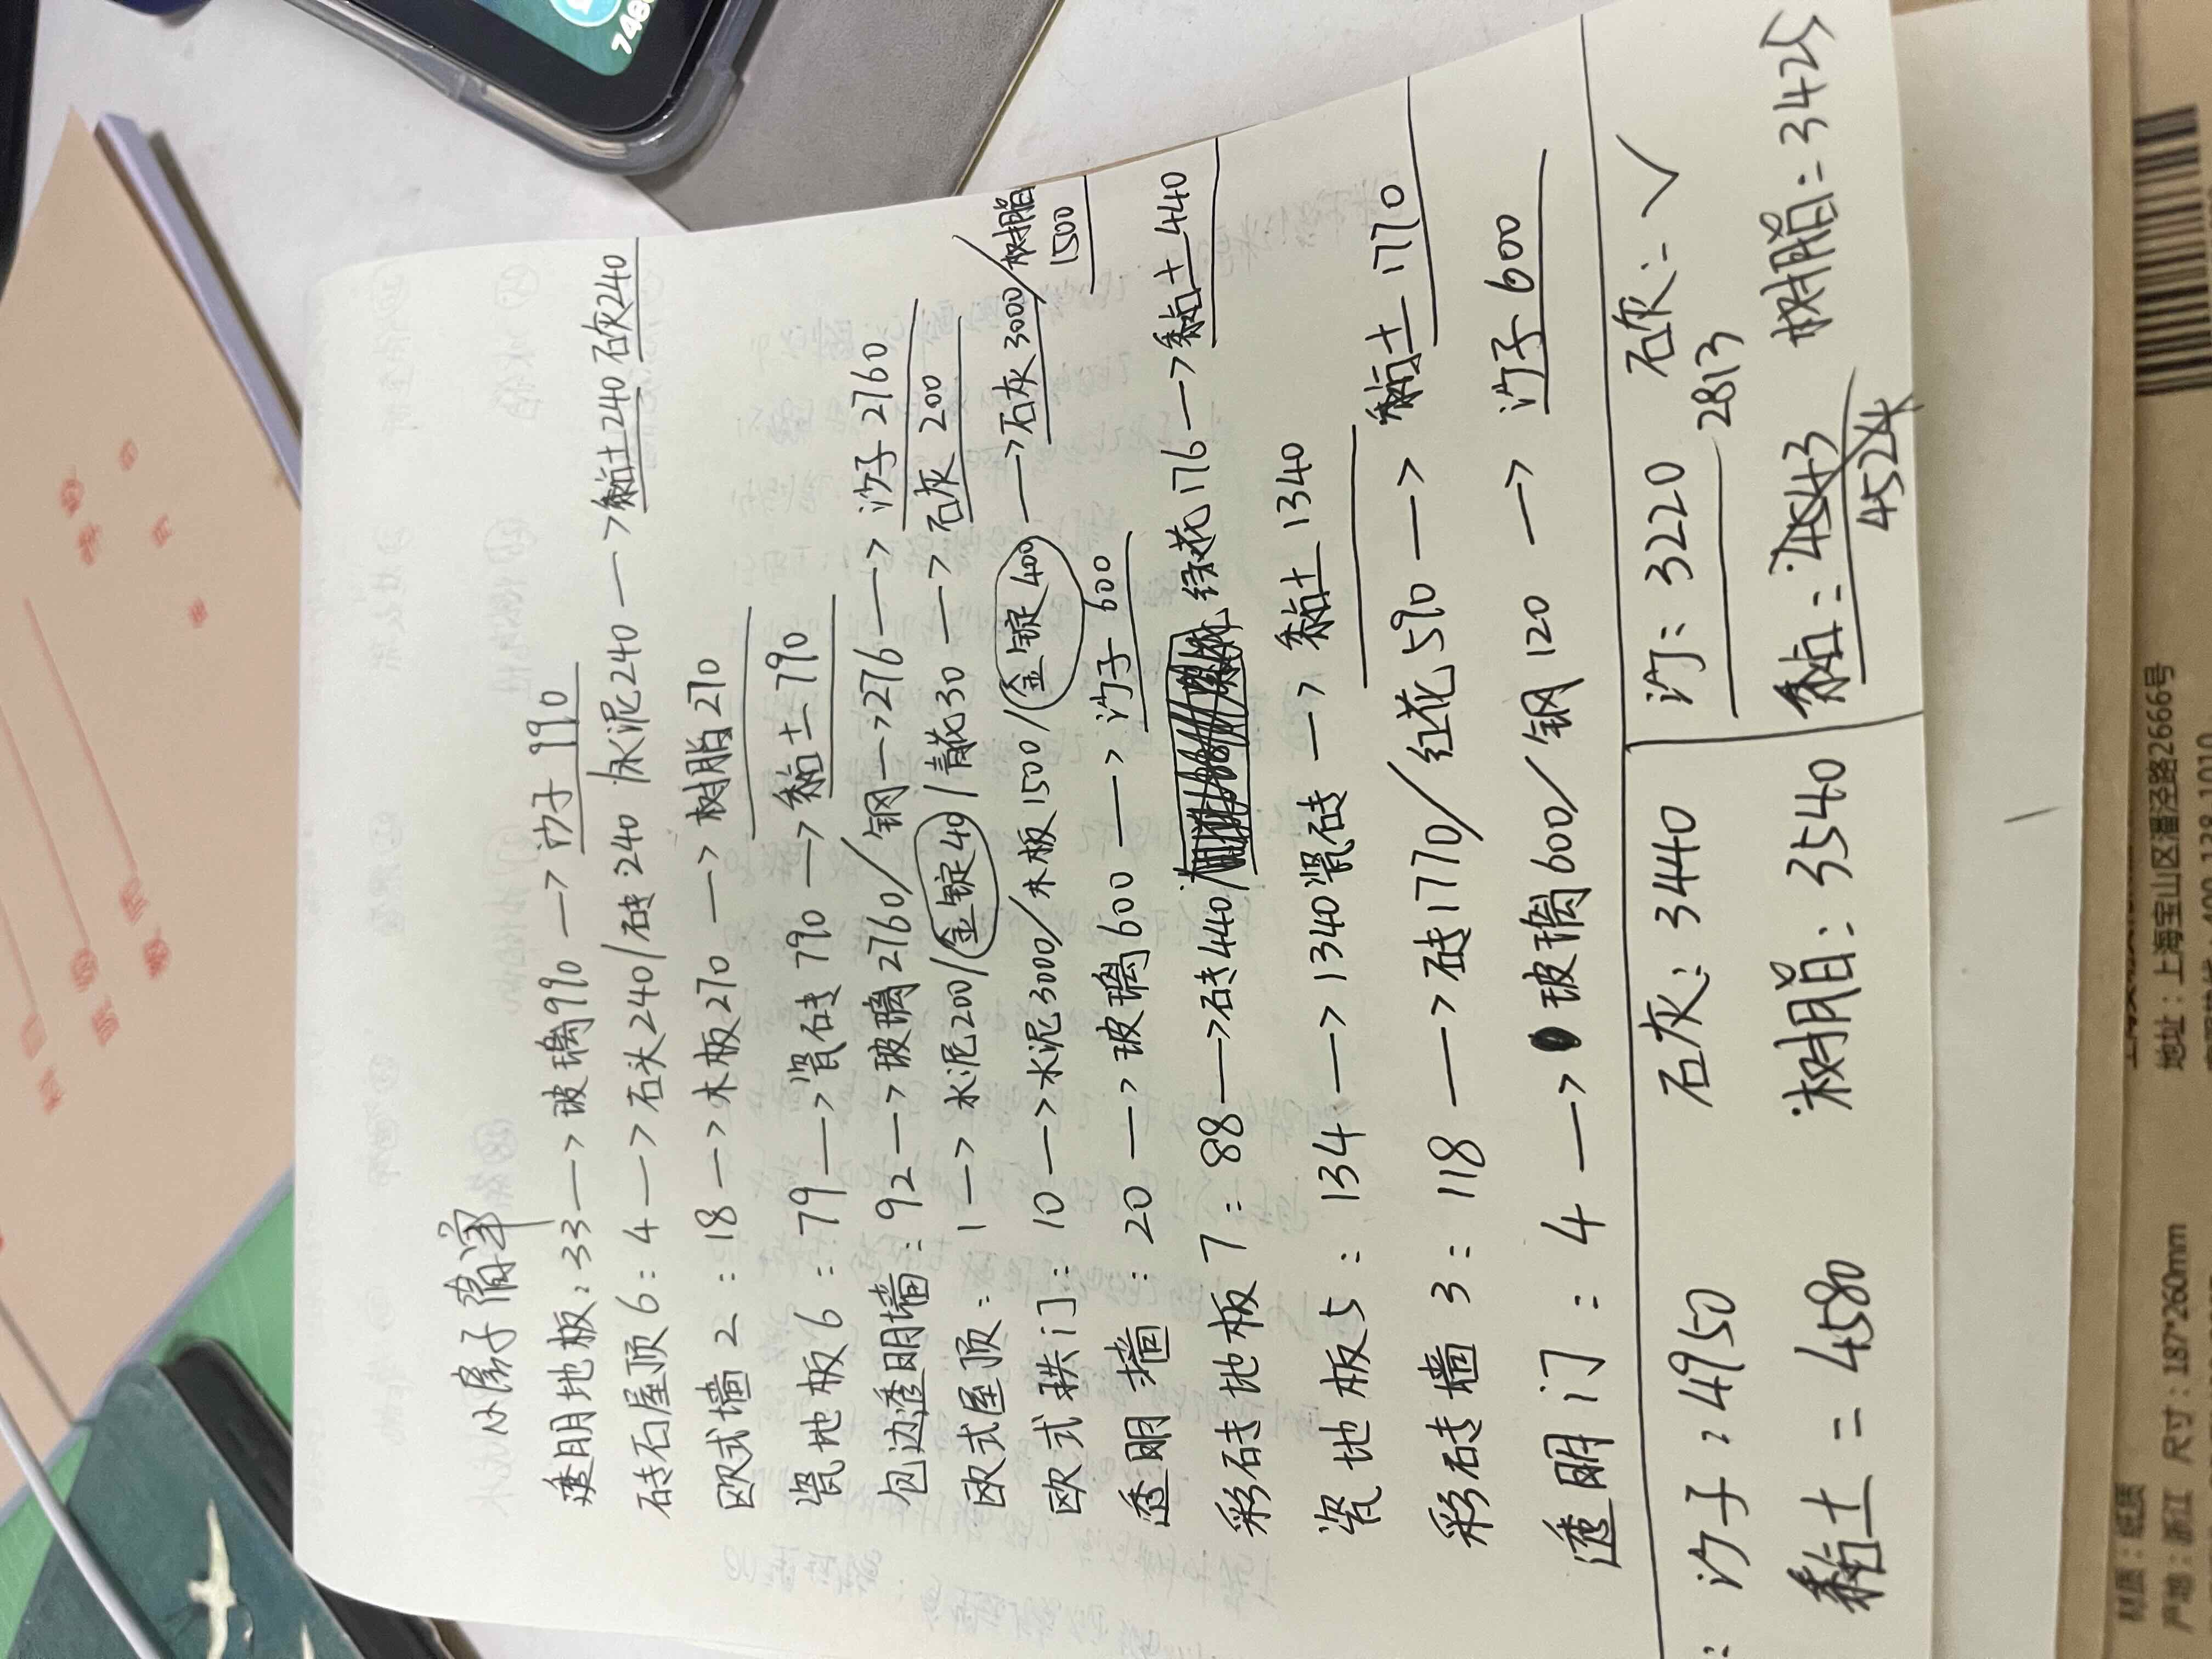 小房子清单
透明地板：33 —> 玻璃990 —> 沙子 990
砖石屋顶 6：4 —> 石头240/砖240/水泥240 —> 黏土240 石灰240
欧式墙 2：18 —> 木板270 —> 树脂270
瓷地板 6：79 —> 瓷砖 790 —> 黏土790
包边透明墙：92 —> 玻璃2760/钢 —> 276 —> 沙子2760
欧式屋顶：1 —> 水泥200/金锭40/青花30 —> 石灰 200
欧式拱门：10 —> 水泥3000/木板1500/金锭400 —> 石灰3000/树脂1500
透明墙：20 —> 玻璃600 —> 沙子 600
彩砖地板 7：88 —> 砖440/绿花176 —> 黏土440
瓷地板5：134 —> 1340瓷砖 —> 黏土1340
彩砖墙 3：118 —> 砖1770/红花590 —> 黏土1770
透明门：4 —> 玻璃600/钢120 —> 沙子600
沙子：4950 石灰：3440
黏土=4580 树脂：3540
沙：3220 石灰：✓
2813
黏：4543 树脂：3425
4524
材质：纸质
产地：浙江 尺寸：187*260mm
地址：上海宝山区潘泾路2666号